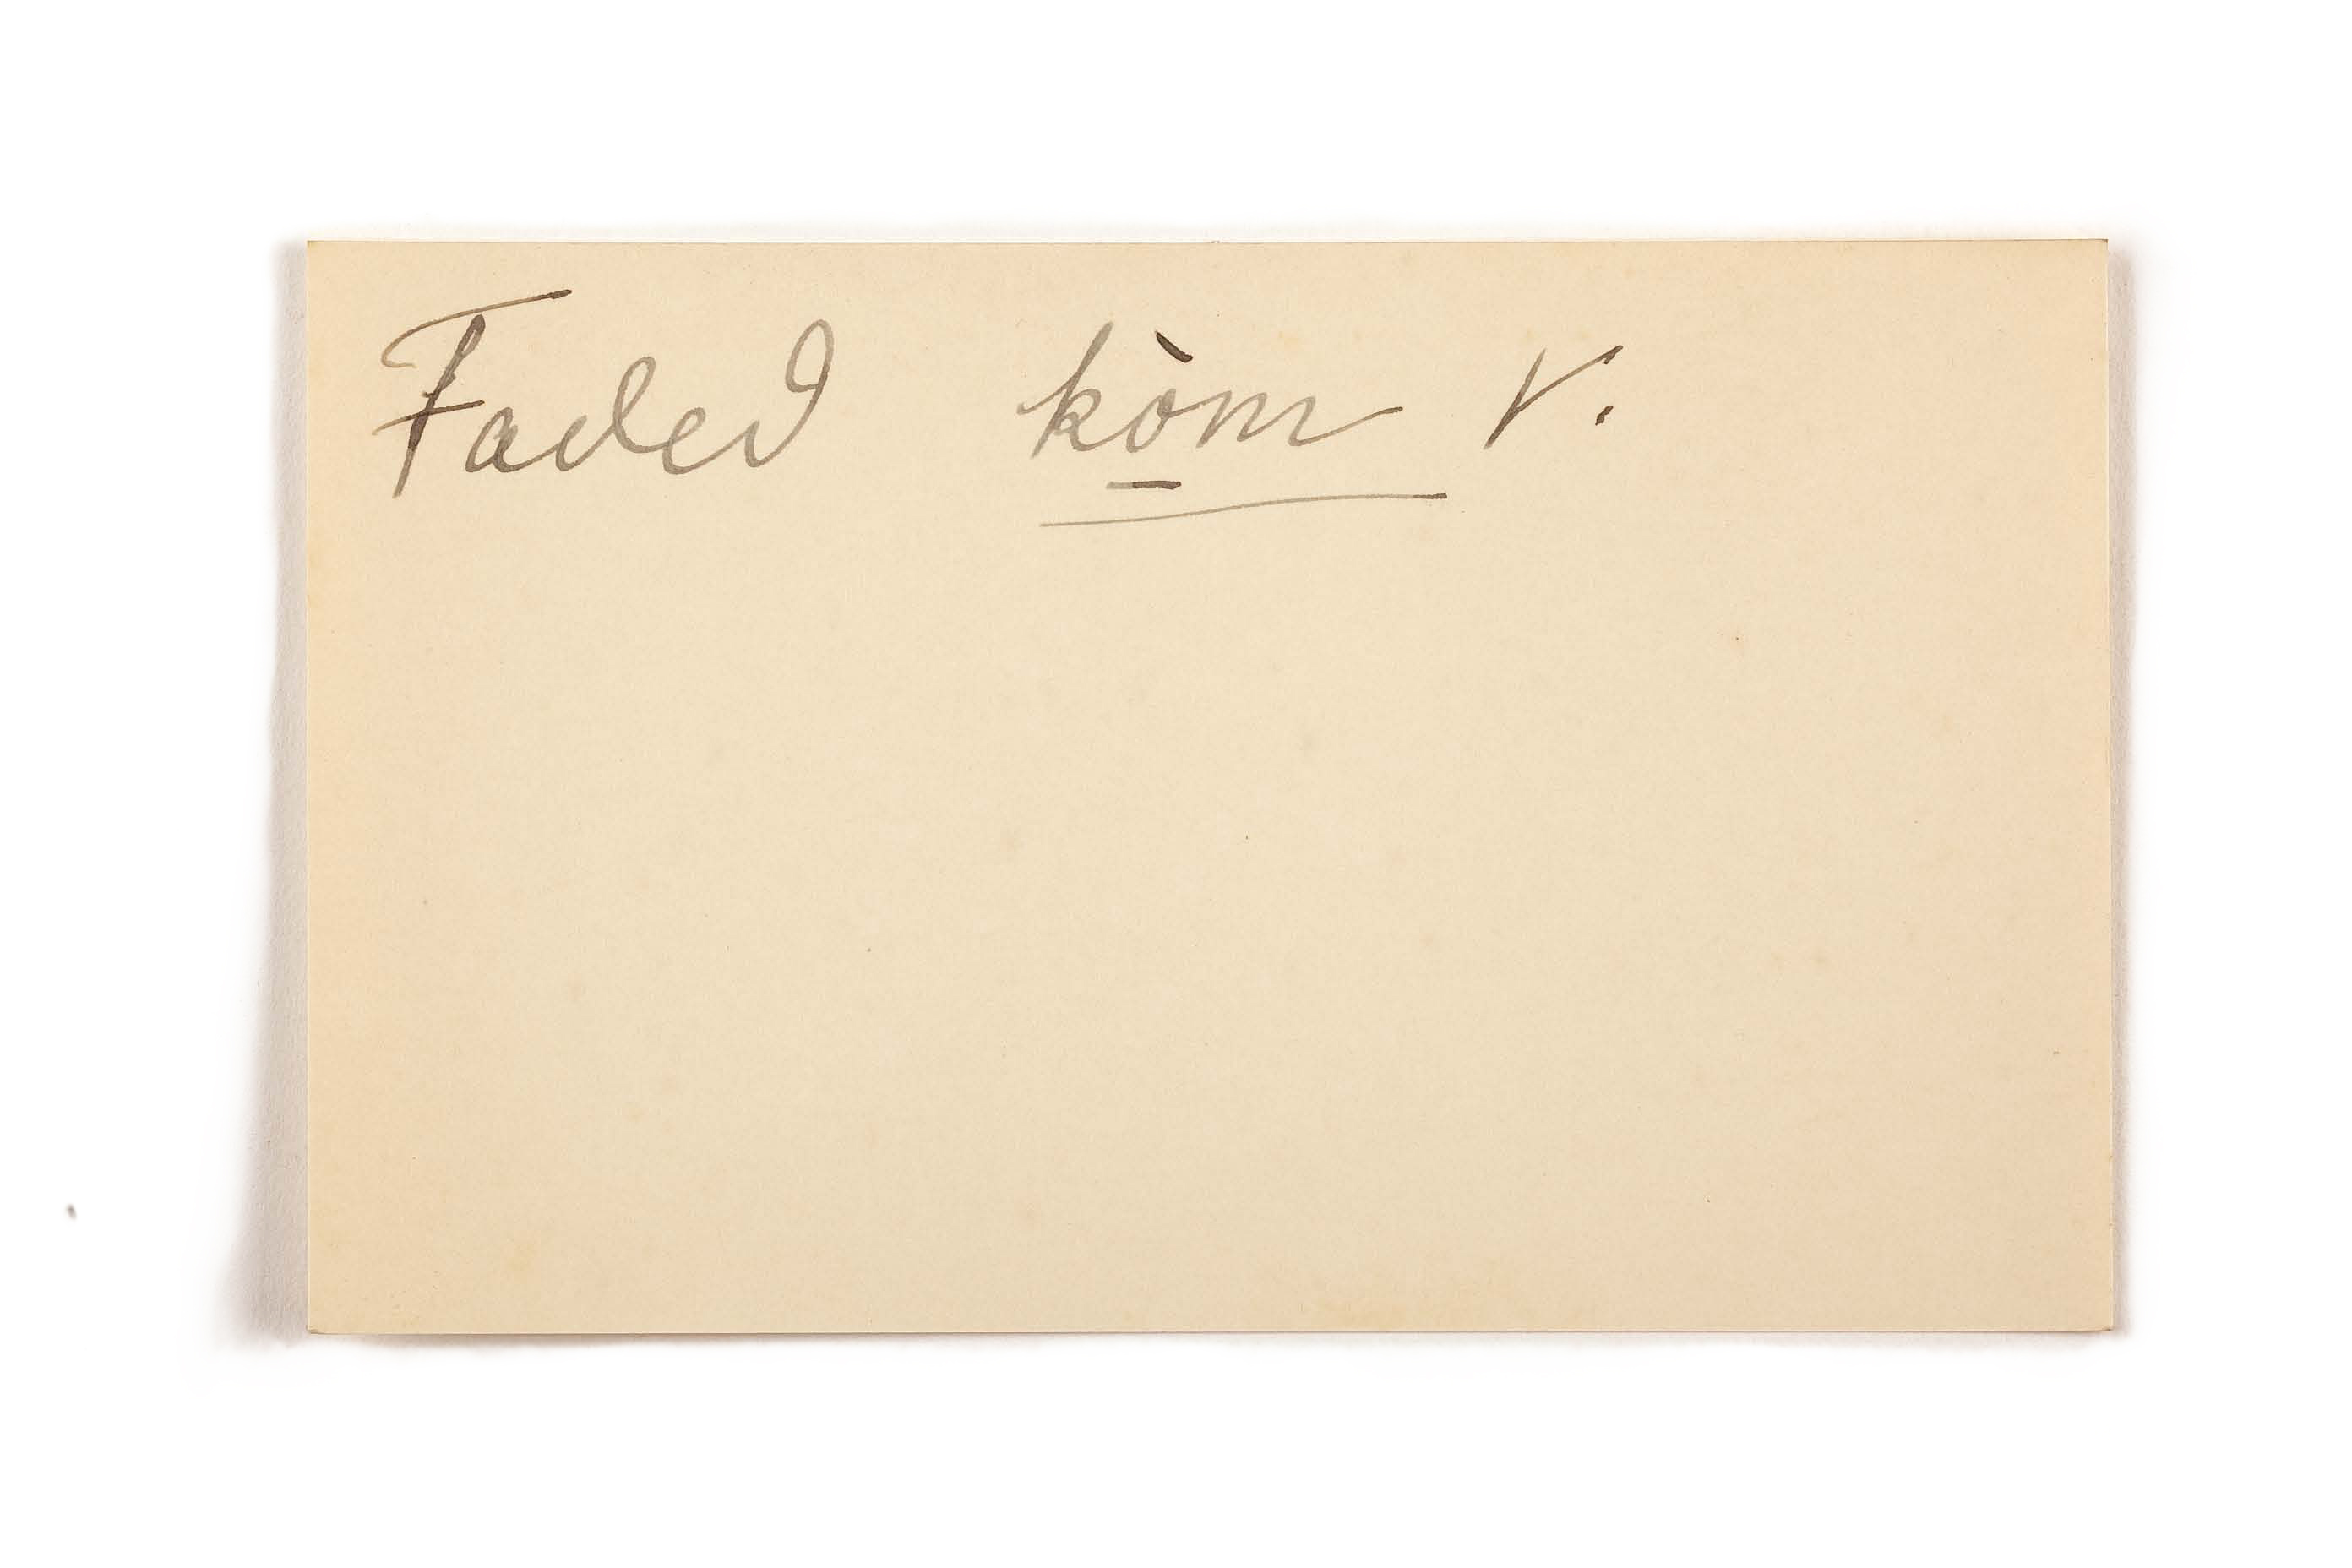 Faded kò̱m v.